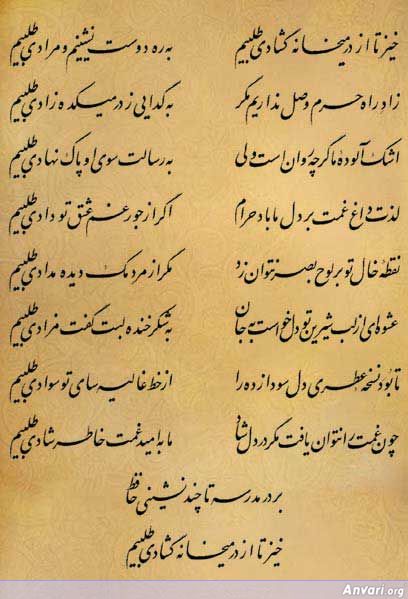 خیز تا از در میخانه گشادی طلبیم به ره دوست نشینیم و مرادی طلبیم
زاد راه حرم وصل نداریم مگر به گدایی ز در میکده زادی طلبیم
اشک آلوده ما گرچه روان است ولی به رسالت سوی او پاک نهادی طلبیم
لذت داغ غمت بر دل ما باد حرام اگر از جور غم عشق تو دادی طلبیم
نقطه خال تو بر لوح بصر نتوان زد مگر از مردمک دیده مدادی طلبیم
عشوه‌ای از لب شیرین تو دل خواست به جان به شکر خنده لبت گفت مرادی طلبیم
تا بود نسخه عطری دل سودازده را از خط غالیه سای تو سوادی طلبیم
چون غمت را نتوان یافت مگر در دل شاد ما به امید غمت خاطر شادی طلبیم
بر در مدرسه تا چند نشینی حافظ
خیز تا از در میخانه گشادی طلبیم
Anvari.org